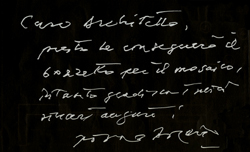 Caro Architetto,
presto le consegnerò il
bozzetto per il mosaico,
intanto gradisca i miei
sinceri auguri!